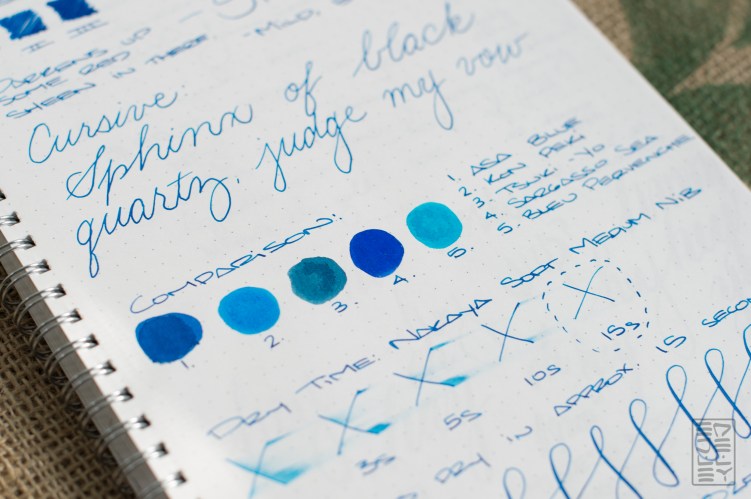 II III
DARKENS UP -
SOME RED
SHEEN IN THERE. -MILD,
Cursive:
Sphinx of black
quartz, judge my vow
COMPARISON:
1. ASA BLUE
2. KON PEKI
3. TSUKI-YO
4. SARGASSO SEA
5. BLEU PERVENCHE
1. 2. 3. 4. 5.
DRY TIME: NAKAYA SOFT MEDIUM NIB
3S 5S 10S 15S
DRY IN APPROX. 15 SECON